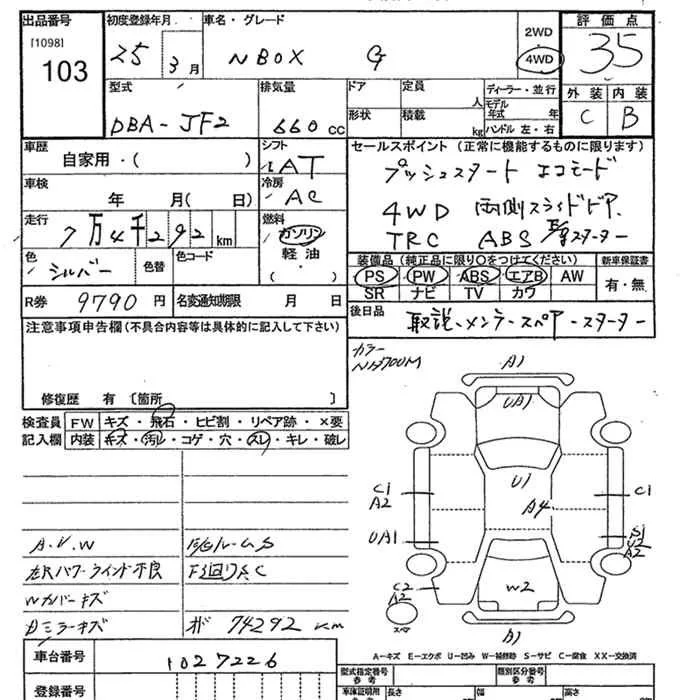 出品番号
[1098]
103
初度登録年月
25 3月
車名・グレード
N BOX G
2WD
4WD
評価点
35
外装 内装
C B
型式
DBA-JF2
排気量
660 cc
ドア 定員 人
形状 積載 kg
ディーラー・並行
モデル年式 年
ハンドル 左・右
車歴
自家用・( )
シフト
AT
車検
年 月( 日)
冷房
AC
走行
7万4千292km
燃料
ガソリン
軽油
( )
色
シルバー
色替
色コード
R券 9790円
名変通知期限 月 日
セールスポイント (正常に機能するものに限ります)
プッシュスタート エコモード
4WD 両側スライドドア
TRC ABS スターター
装備品(純正品に限り○をつけてください)
PS PW ABS エアB AW
SR ナビ TV カワ
新車保証書
有・無
後日品
取説-メンテ-スペア-スターター
注意事項申告欄(不具合内容等は具体的に記入して下さい)
修復歴 有 〔箇所 〕
カラー
NH700M
検査員記入欄
FW キズ・飛石・ヒビ割・リペア跡・×要
内装 キズ・汚レ・コゲ・穴・スレ・キレ・破レ
A.V.W
左Rパワーウインド不良
Wカバーキズ
Dミラーキズ
E/Gルーム S
F廻りA.C
オド 74292 km
A1
UA1
U1
A4
C1
A2
UA1
C2
A2
C1
S1
U2
A2
W2
スペア
A1
A-キズ E-エクボ U-凹み W-補修跡 S-サビ C-腐食 XX-交換済
車台番号
1027226
登録番号
型式指定番号
参考
類別区分番号
参考
車庫証明用
参考
長さ 幅 高さ